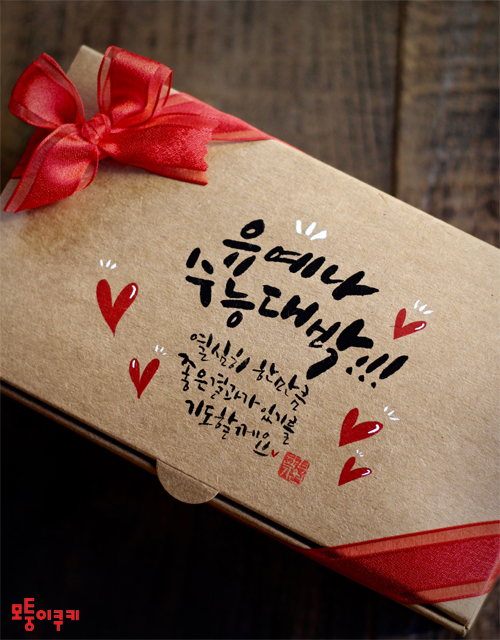 유예나
수능대박!!!
열심히 한만큼
좋은결과가 있기를
기도할게요
모퉁이쿠키